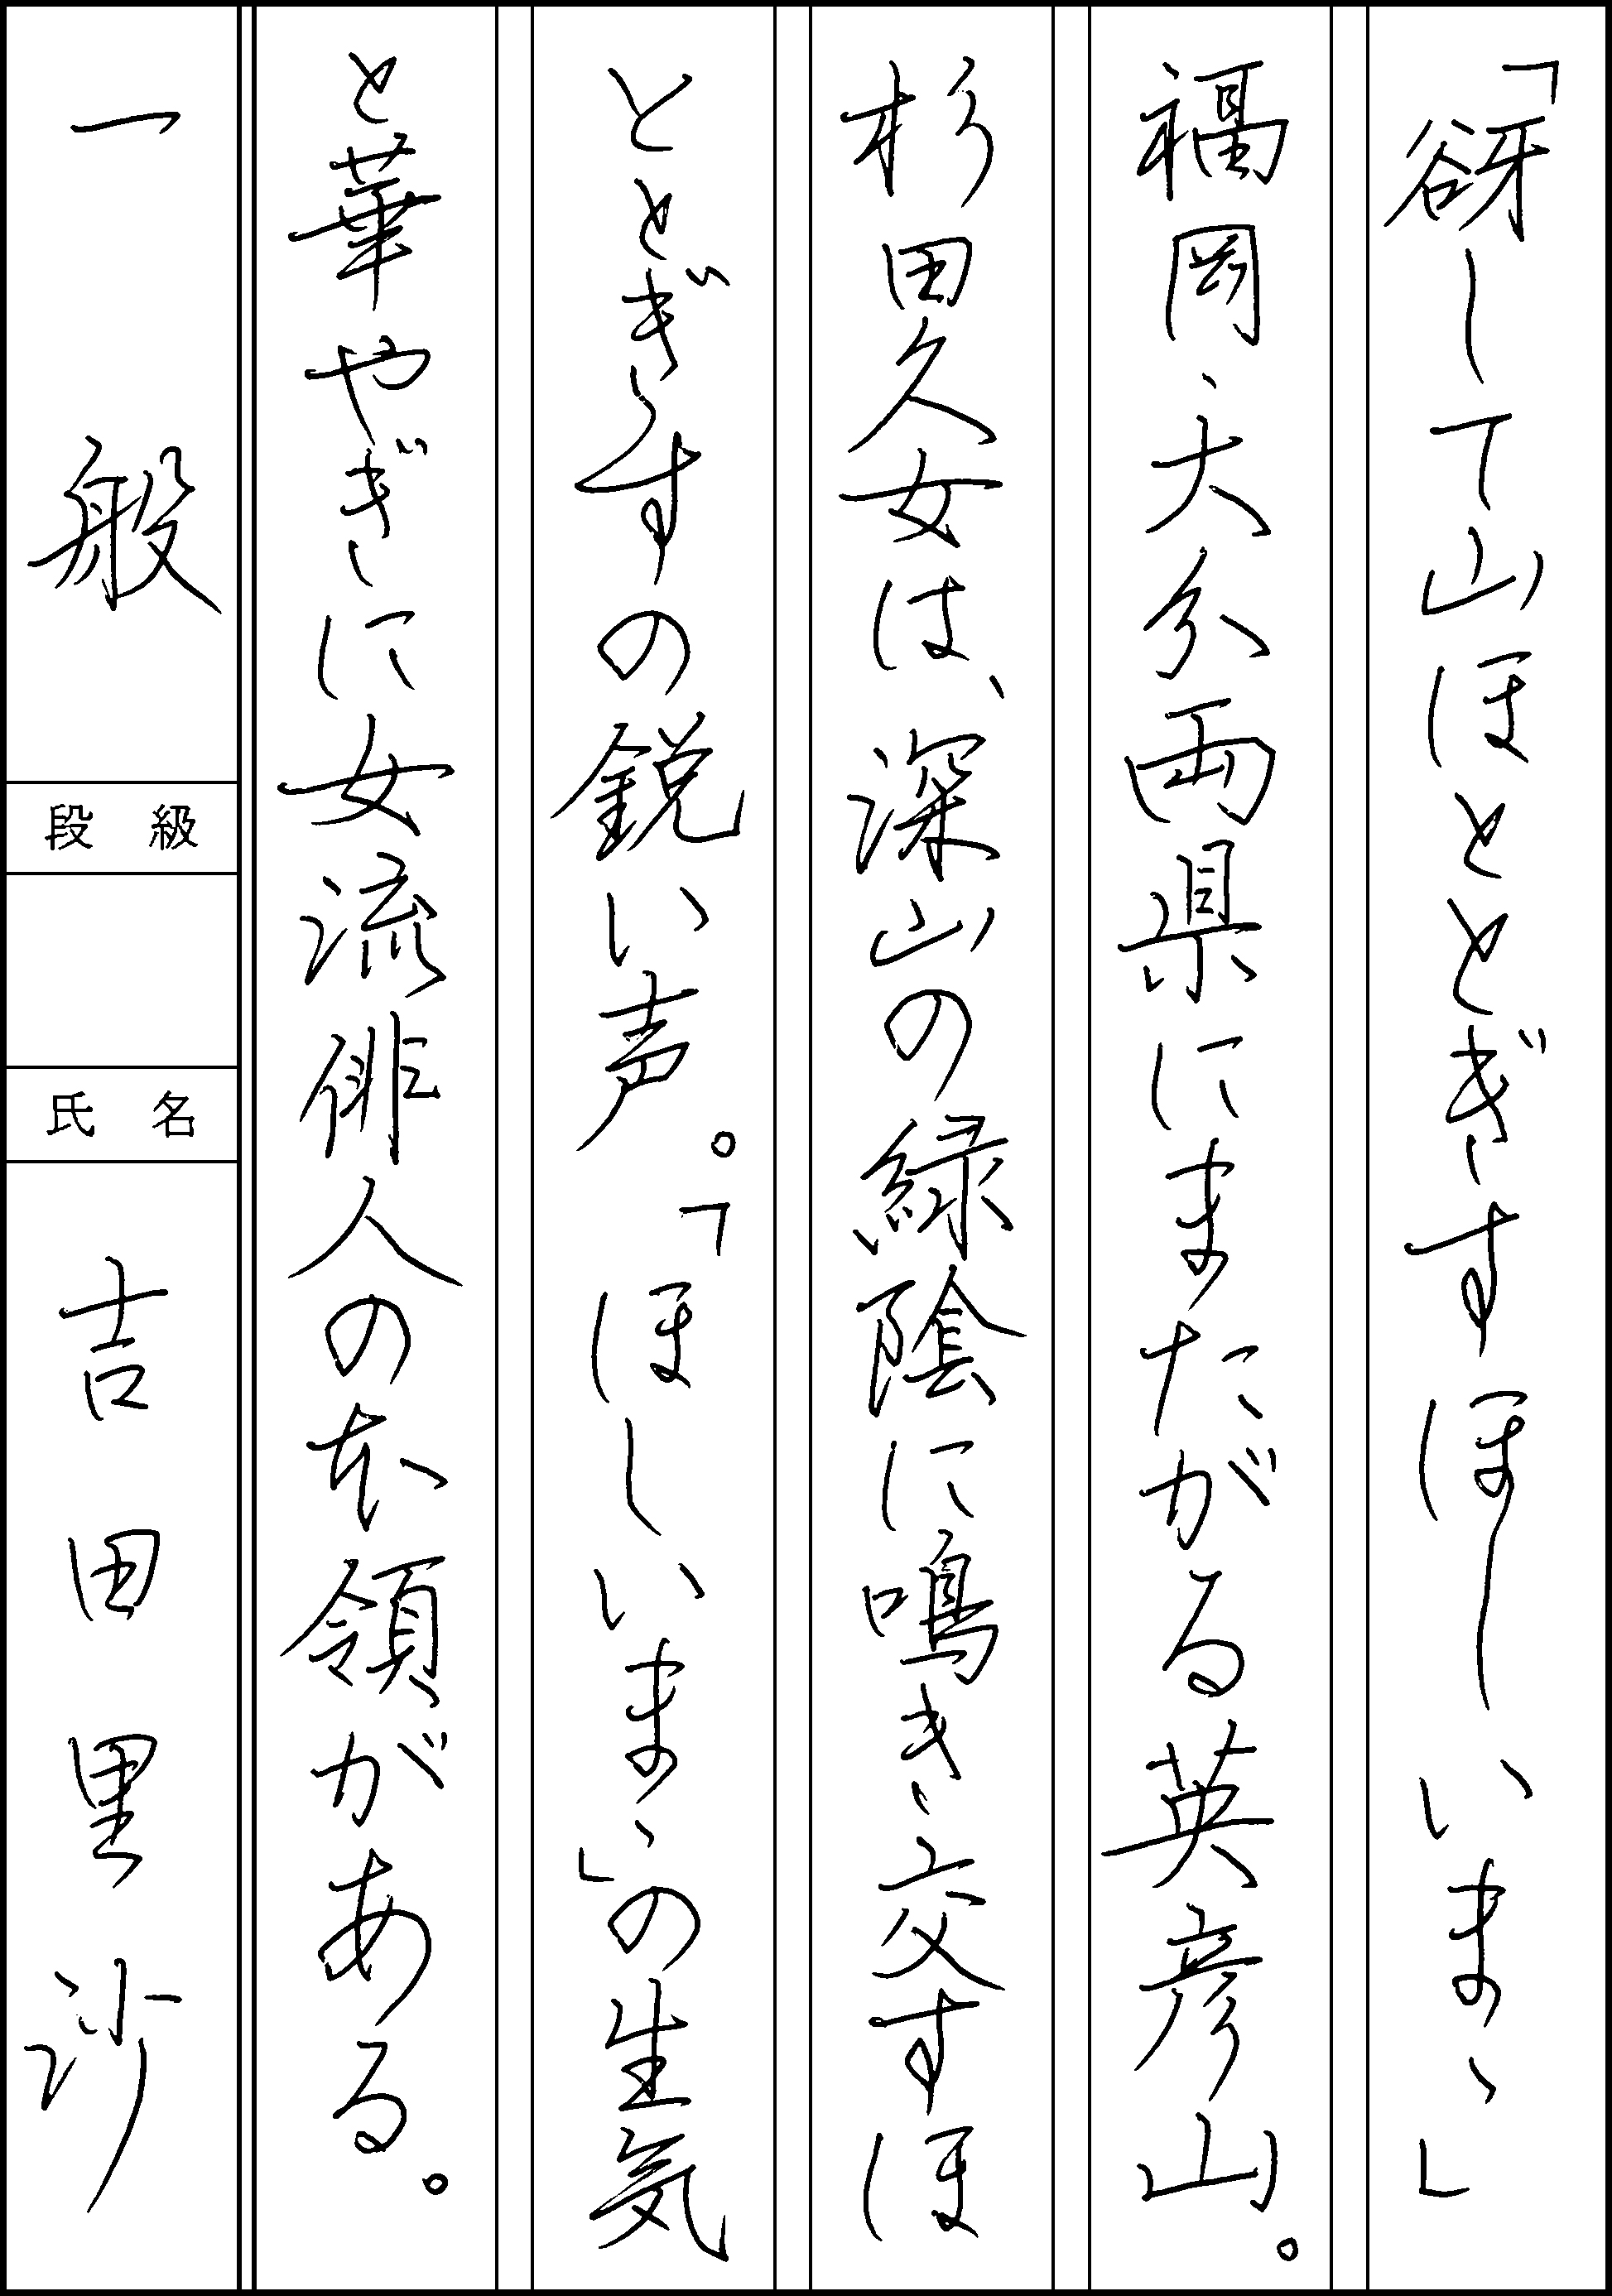 「谺して山ほととぎすほしいまゝ」
福岡、大分両県にまたがる英彦山。
杉田久女は、深山の緑陰に鳴き交すほ
ととぎすの鋭い声。「ほしいまゝ」の生気
と華やぎに女流俳人の本領がある。
一般
段級
氏名
吉田里沙